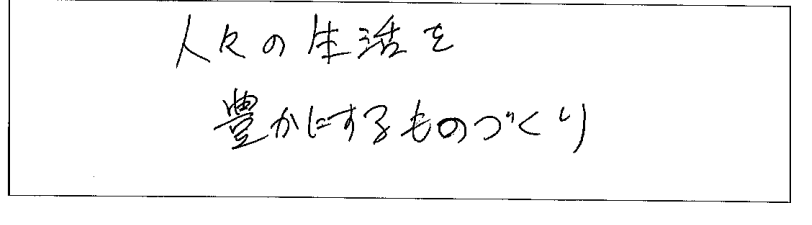 人々の生活を
豊かにするものづくり